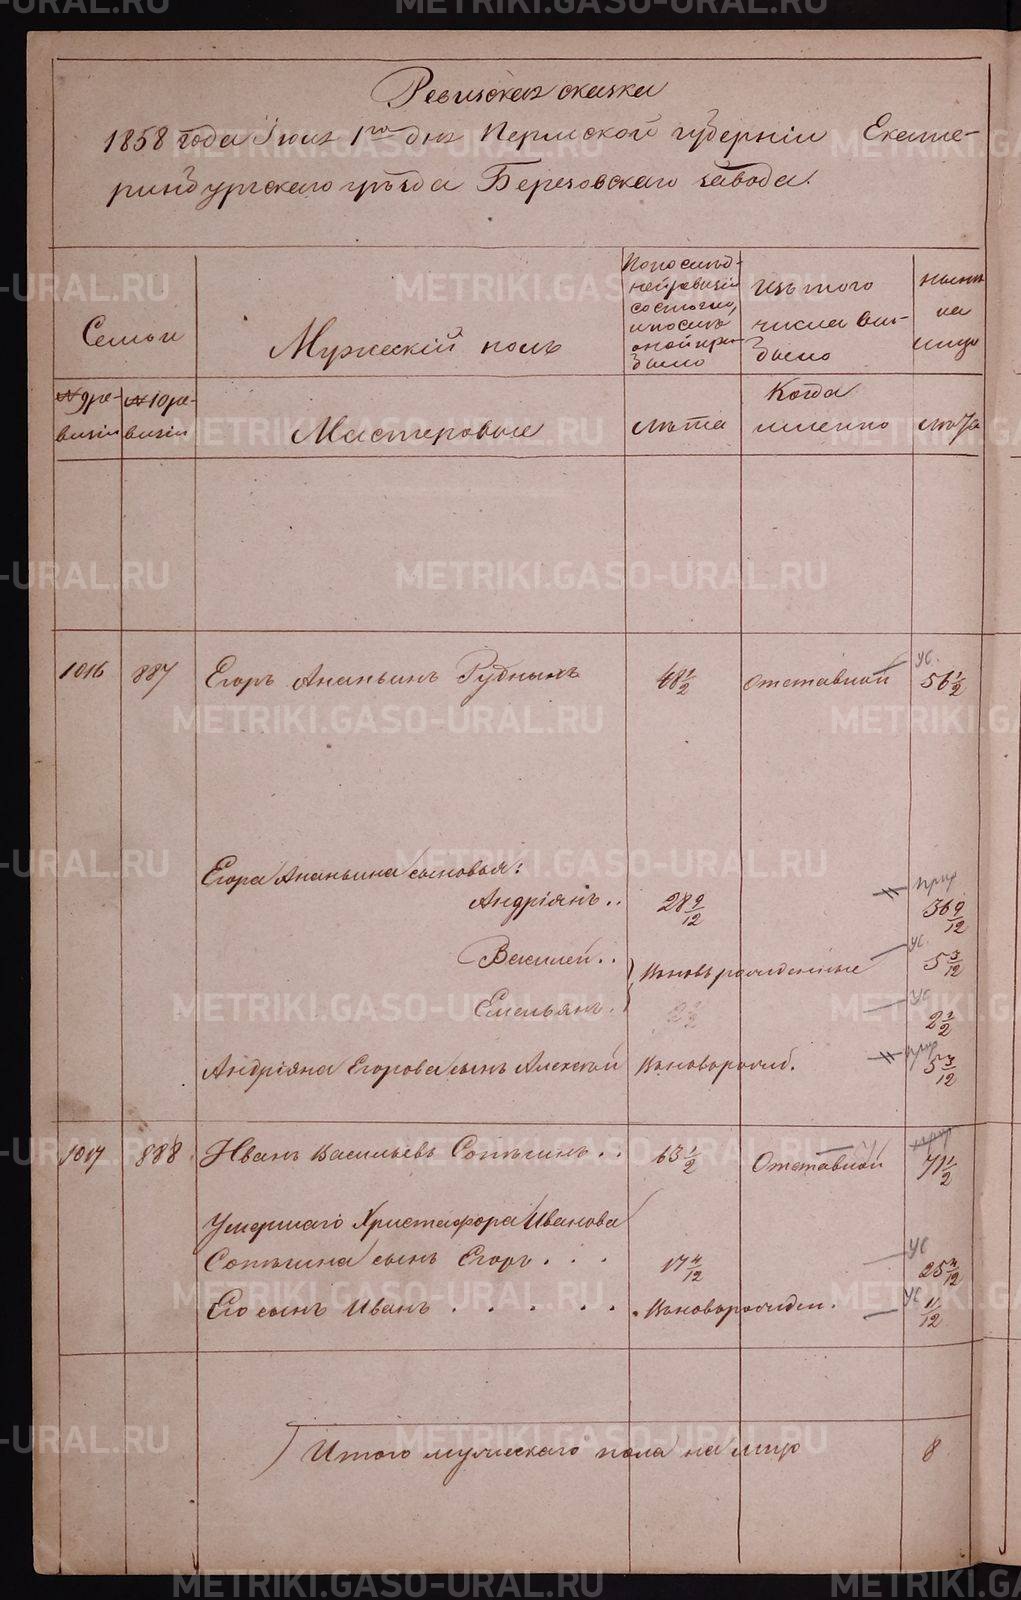 Ревизская сказка
1858 года Iюня 1го дня Пермской губернiи Екате-
ринбургскаго уѣзда Березовскаго завода.
Семьи
Мужескiй полъ
По послѣд-
ней ревизiи
состояло,
и послѣ
оной при-
было
Изъ того
числа вы-
было
Нынѣ
на
лицо
№ 9 ре-
визiи
№ 10 ре-
визiи
Мастеровые
лѣта
Когда
именно
лѣта
1016 887 Егоръ Ананьинъ Рудныхъ 48 1/2 Отставной ус. 56 1/2
Егора Ананьина сыновья:
Андрiянъ.. 28 9/12 прих 36 9/12
Василей.. Вновь рожденные ус. 5 3/12
Емельянъ. ус 2 1/2
Андрiяна Егорова сынъ Алексѣй Вноворожд. прих 5 3/12
1017 888 Иванъ Васильевъ Сотѣгинъ.. 63 1/2 Отставной 71 1/2
Умершаго Христофора Иванова
Сотѣгина сынъ Егоръ... 17 4/12 ус 25 4/12
Его сынъ Иванъ...... Вноворожден. ус 11/12
Итого мужескаго пола на лицо 8
METRIKI.GASO-URAL.RU